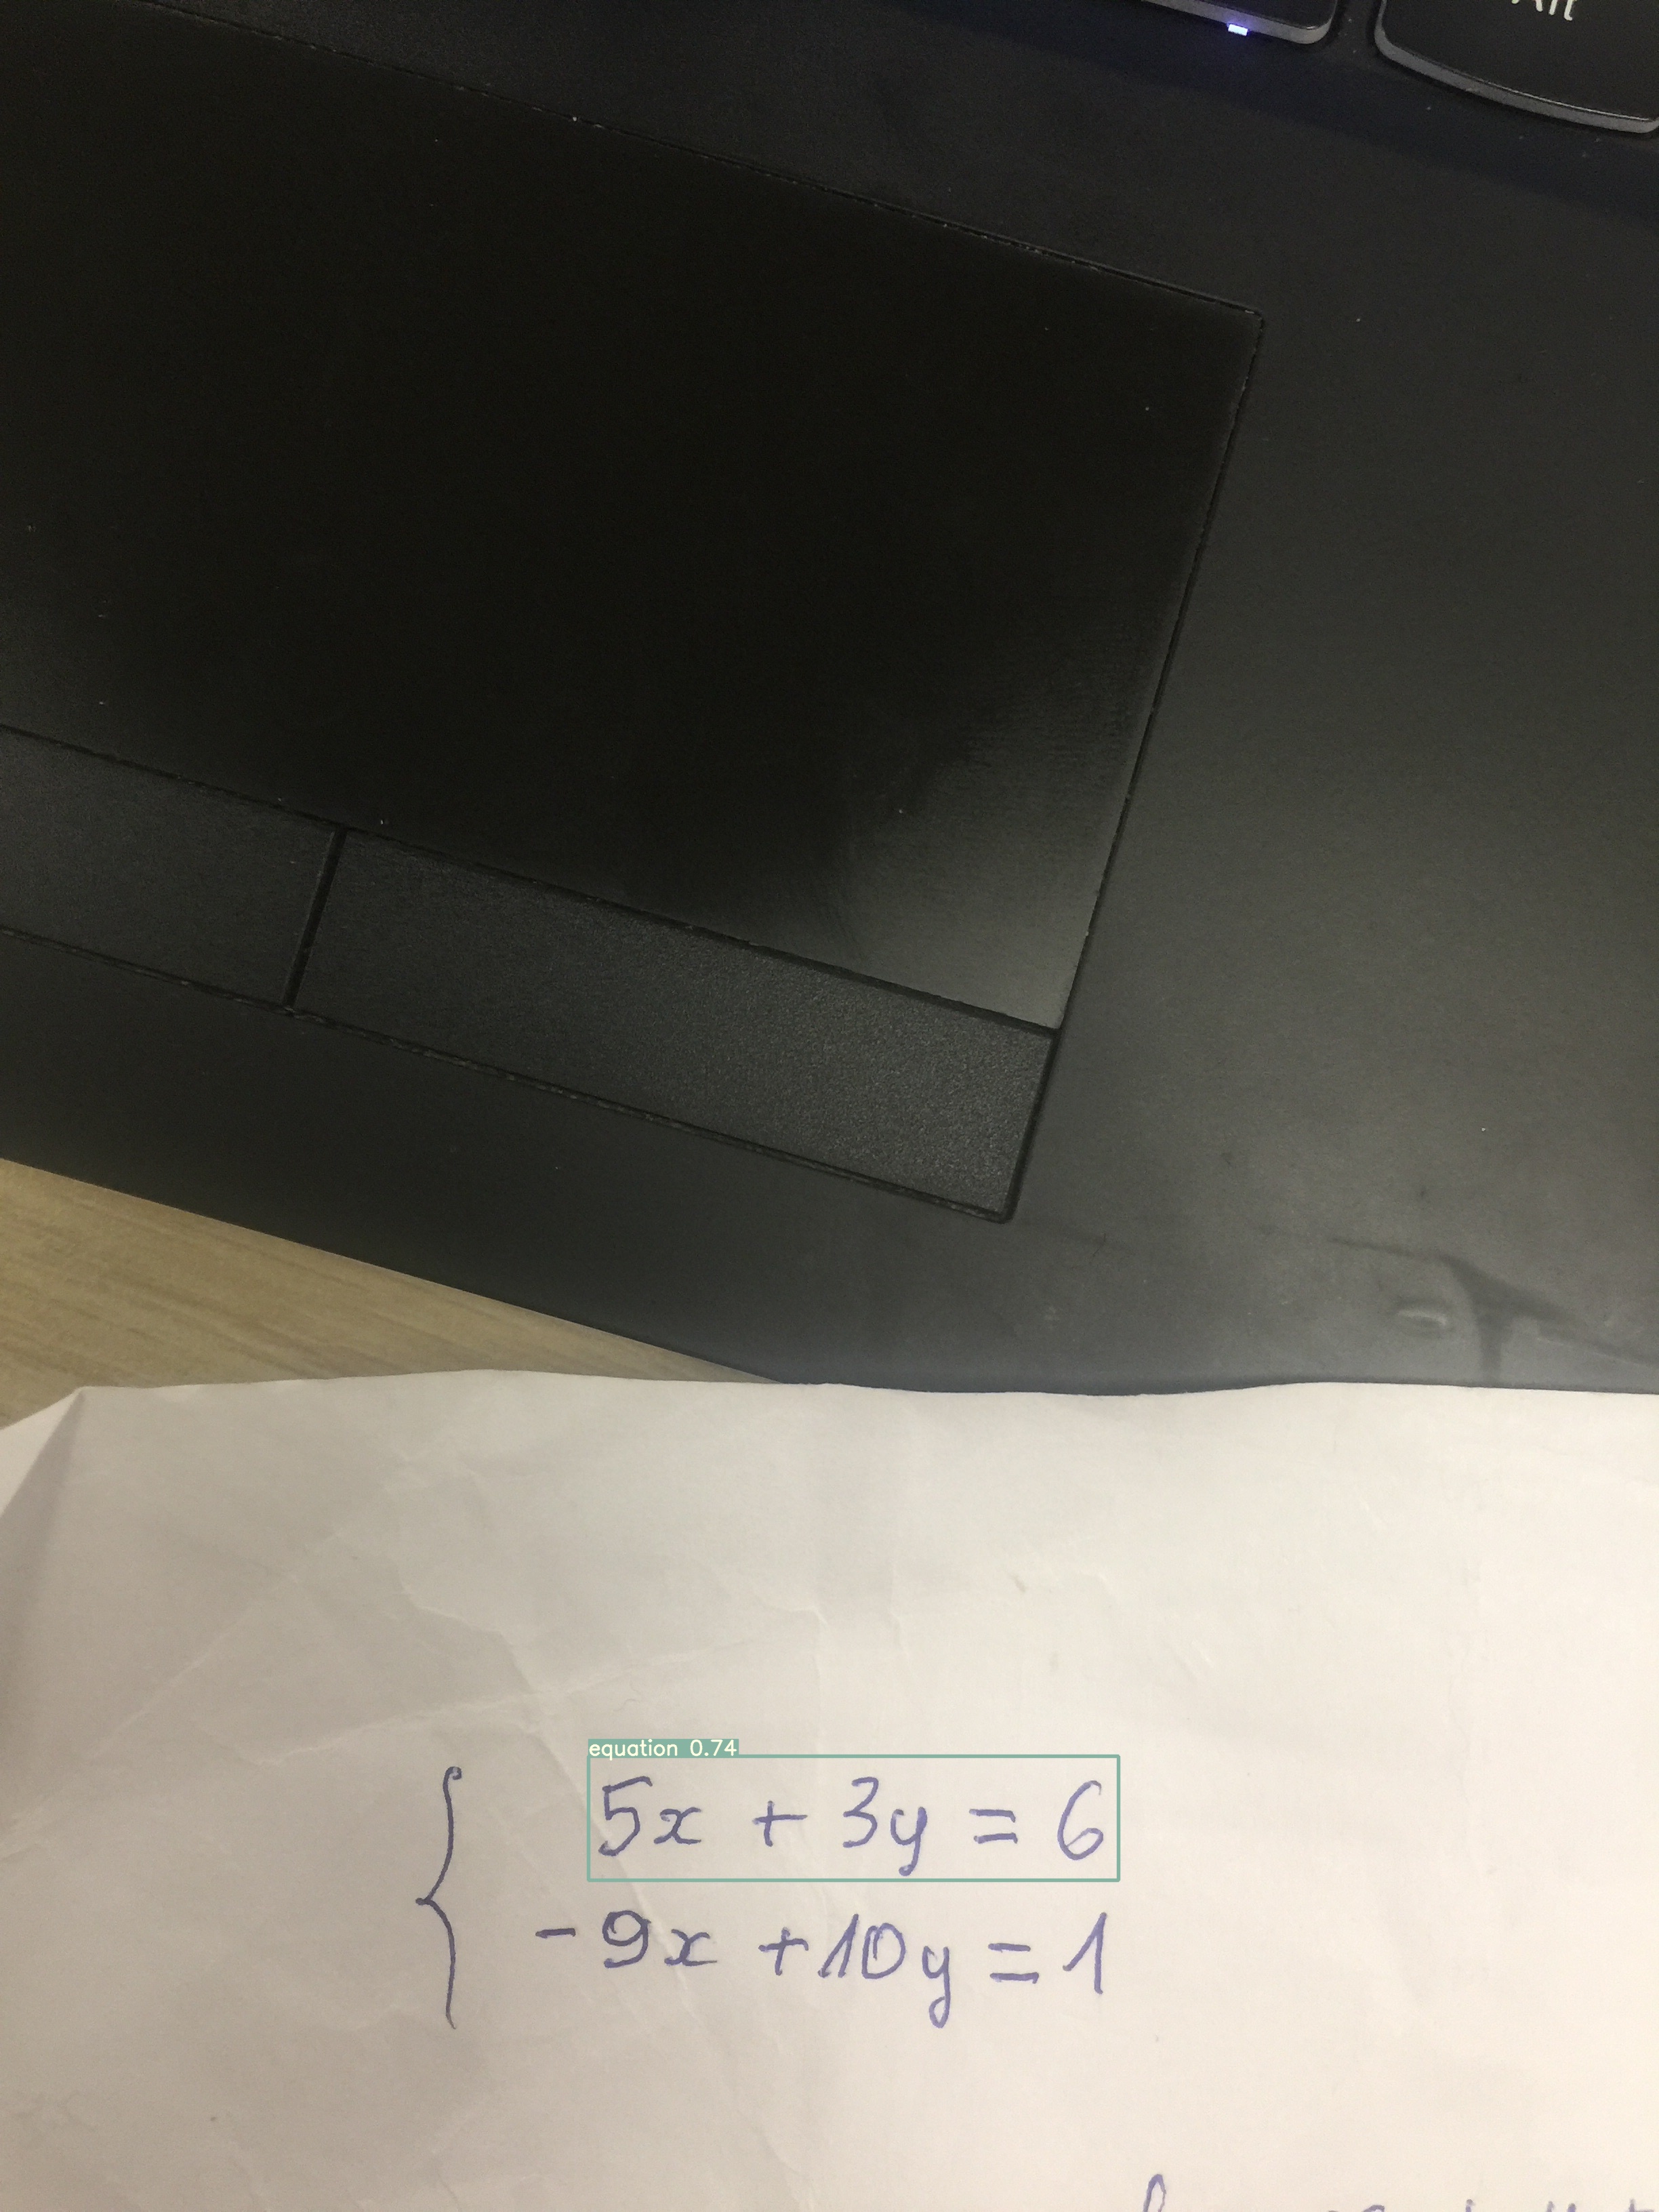 Alt
equation 0.74
5x + 3y = 6
-9x +10y = 1